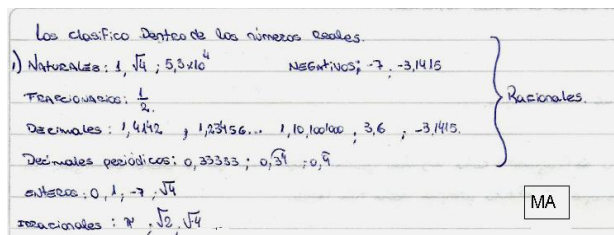 Los clasifico Dentro de los números Reales.
1) NATURALES: 1, √4 ; 5,3x10⁴ NEGATIVOS; -7 ; -3,1415
FRACCIONARIOS: 1/2.
Decimales: 1,4142 , 1,23456... 1,10,100100 , 3,6 , -3,1415.
Racionales.
Decimales periódicos: 0,33333 ; 0,34 ; 0,4
ENTEROS: 0, 1, -7, √4
IRRACIONALES: π , √2, √-4
MA